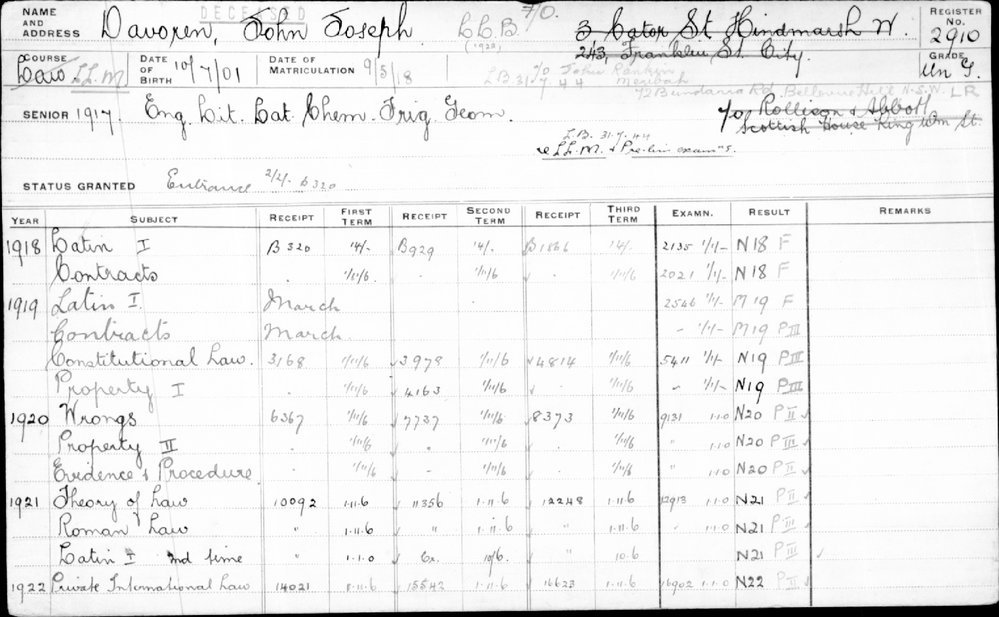 DECEASED
NAME AND ADDRESS Davoren, John Joseph LLB (1922) 3 Cator St Hindmarsh W. REGISTER No. 2910
243, Franklin St. City.
COURSE Law LL.M DATE OF BIRTH 10/7/01 DATE OF MATRICULATION 9/5/18 GRADE Un G.
LB 31.7.44 c/o John Rankin Meribah
72 Bundarra Rd. Bellevue Hill N.S.W. LR
SENIOR 1917. Eng. Lit. Lat. Chem. Trig. Geom. c/o Rollison & Abbott
Scottish House King Wm St.
L.B. 31.7.44
re LL.M. & Prelim exams.
STATUS GRANTED Entrance 2/2/- B320
YEAR SUBJECT RECEIPT FIRST TERM RECEIPT SECOND TERM RECEIPT THIRD TERM EXAMN. RESULT REMARKS
1918 Latin I B320 14/- B929 14/- B1866 14/- 2135 1/1/- N18 F
Contracts . 1/11/6 . 1/11/6 . 1/11/6 2021 1/1/- N18 F
1919 Latin I. March 2546 1/1/- M19 F
Contracts March - 1/1/- M19 PIII
Constitutional Law. 3168 1/11/6 3978 1/11/6 4814 1/11/6 5411 1/1/- N19 PIII
Property I . 1/11/6 4163 1/11/6 . 1/11/6 - 1/1/- N19 PIII
1920 Wrongs 6367 1/11/6 7737 1/11/6 8373 1/11/6 9131 1.1.0 N20 PII
Property II . 1/11/6 . 1/11/6 . 1/11/6 " 1.1.0 N20 PIII
Evidence & Procedure. . 1/11/6 . 1/11/6 . 1/11/6 " 1.1.0 N20 PII
1921 Theory of Law 10092 1.11.6 11356 1.11.6 12248 1.11.6 12913 1.1.0 N21 PII
Roman Law " 1.11.6 " 1.11.6 " 1.11.6 " 1.1.0 N21 PIII
Latin I 2nd time " 1.1.0 Ex. 10/6. " 10.6 N21 PIII
1922 Private International Law 14021 1.11.6 15542 1.11.6 16623 1.11.6 16902 1.1.0 N22 PII